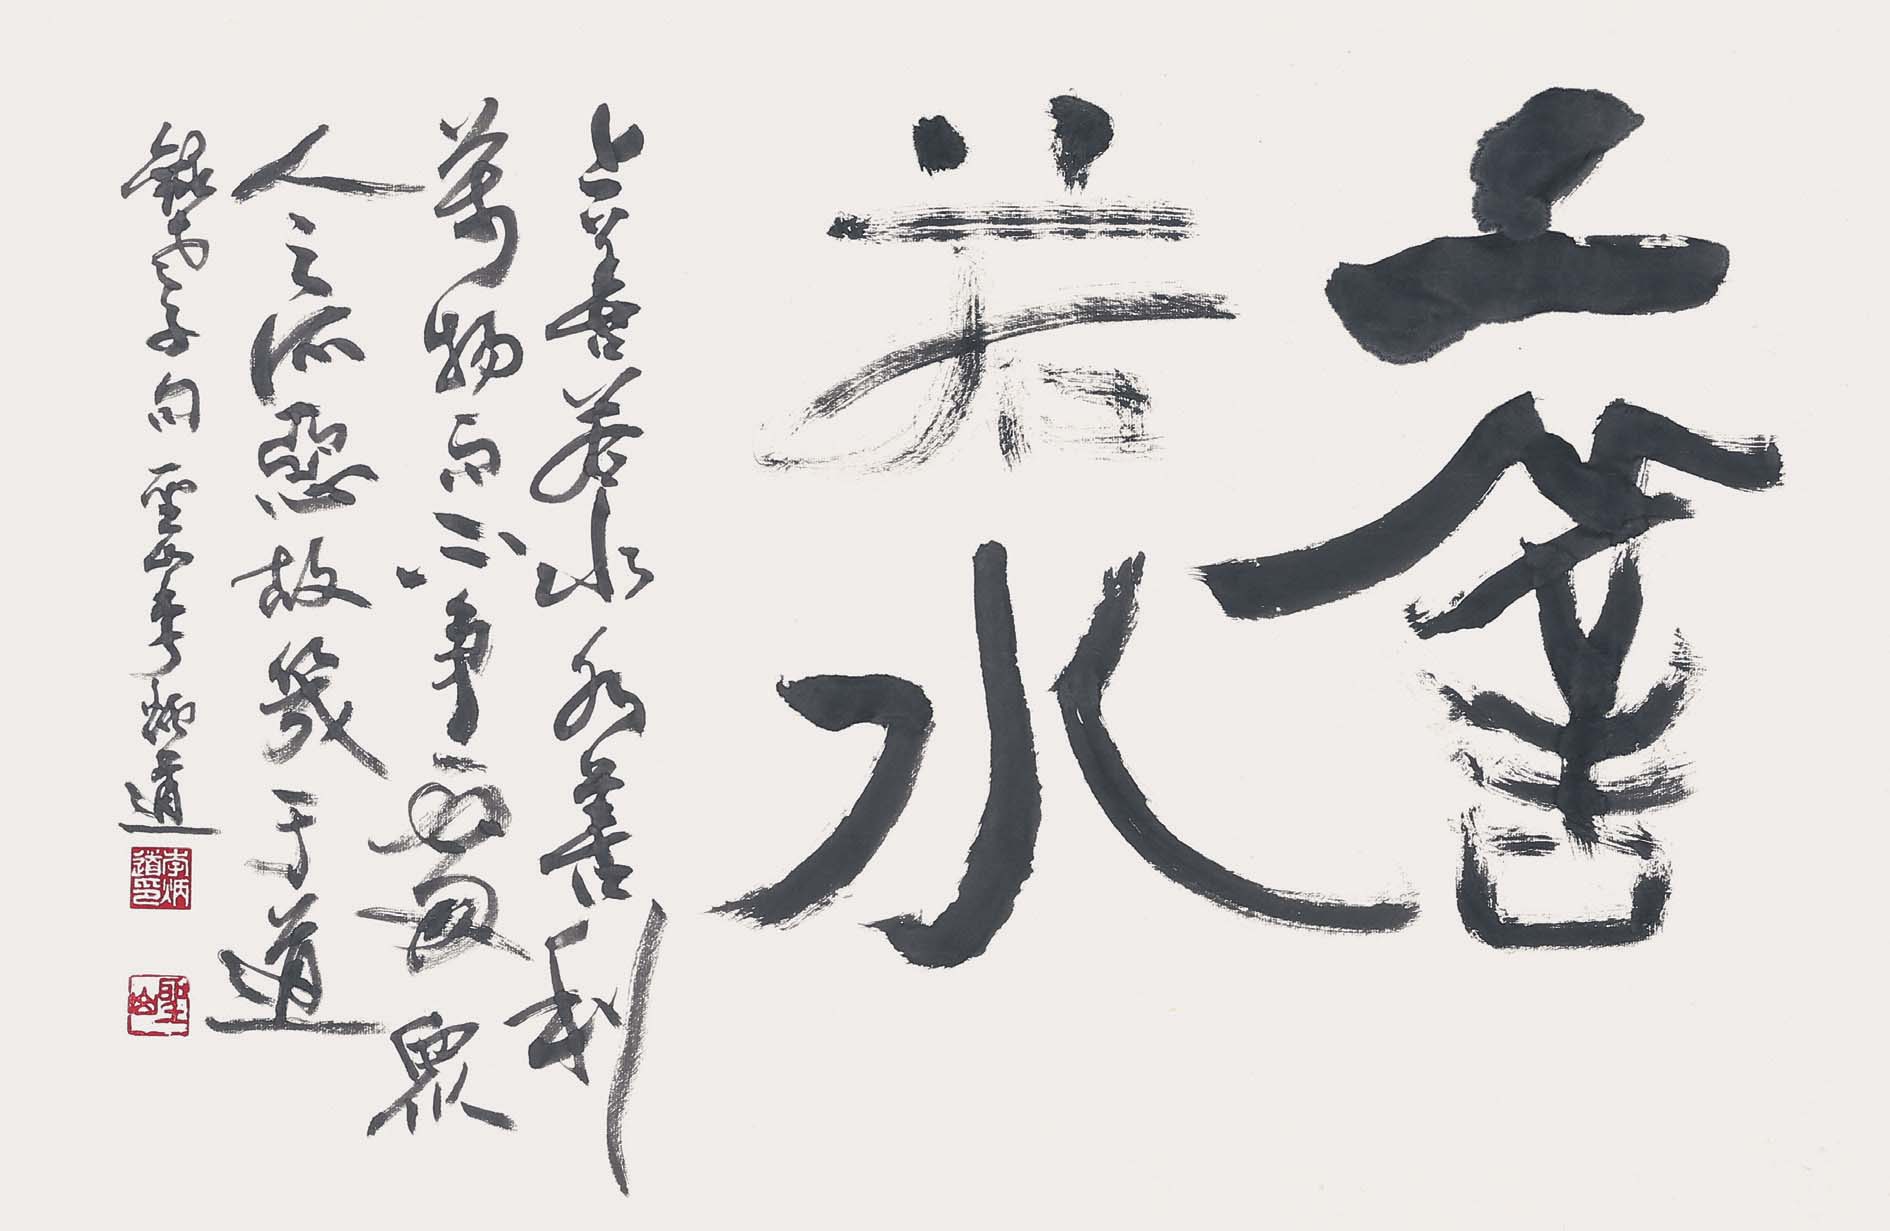 上善
若水
上善若水水善利
萬物而不爭處眾
人之所惡故幾于道
錄老子句 聖山李炳道
李炳道印
聖山